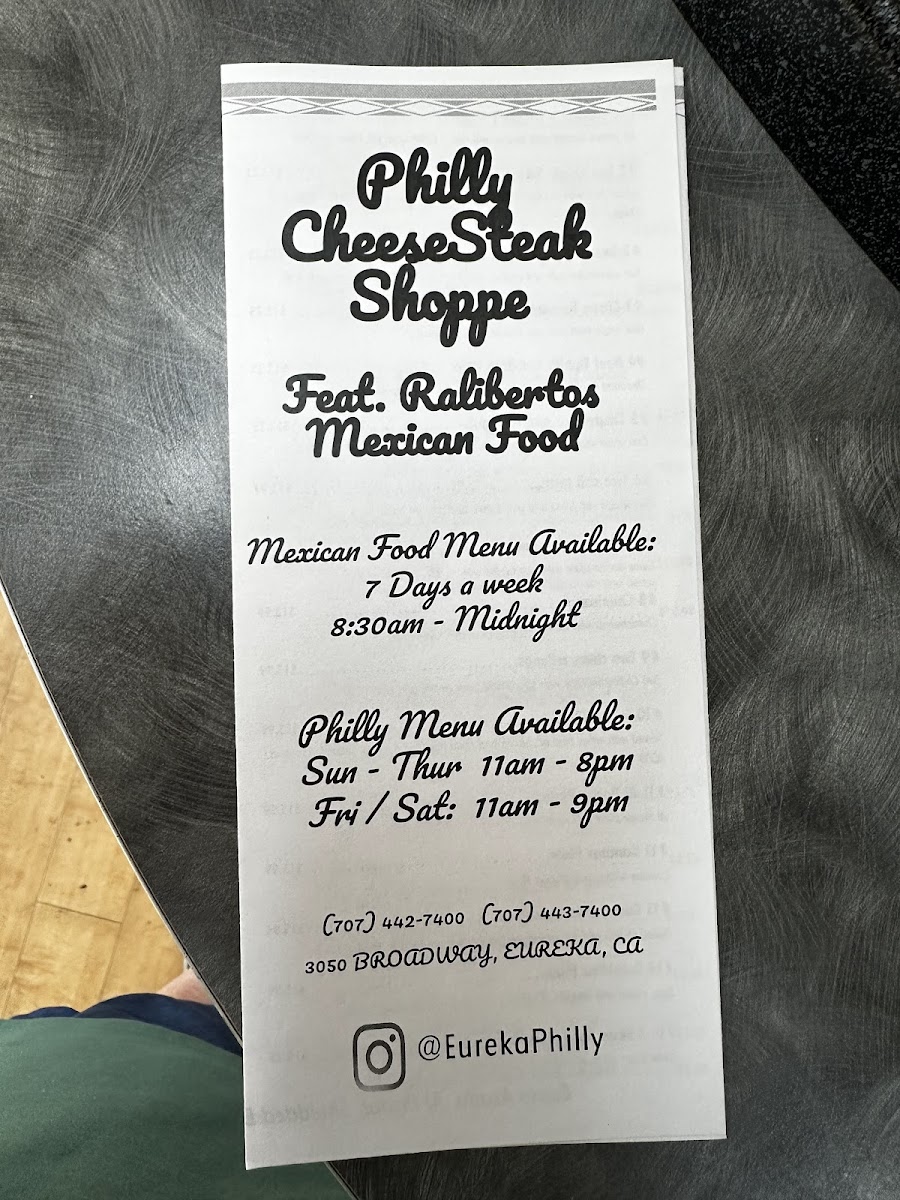 Philly
CheeseSteak
Shoppe
Feat. Ralibertos
Mexican Food
Mexican Food Menu Available:
7 Days a week
8:30am - Midnight
Philly Menu Available:
Sun - Thur 11am - 8pm
Fri / Sat: 11am - 9pm
(707) 442-7400 (707) 443-7400
3050 BROADWAY, EUREKA, CA
@EurekaPhilly